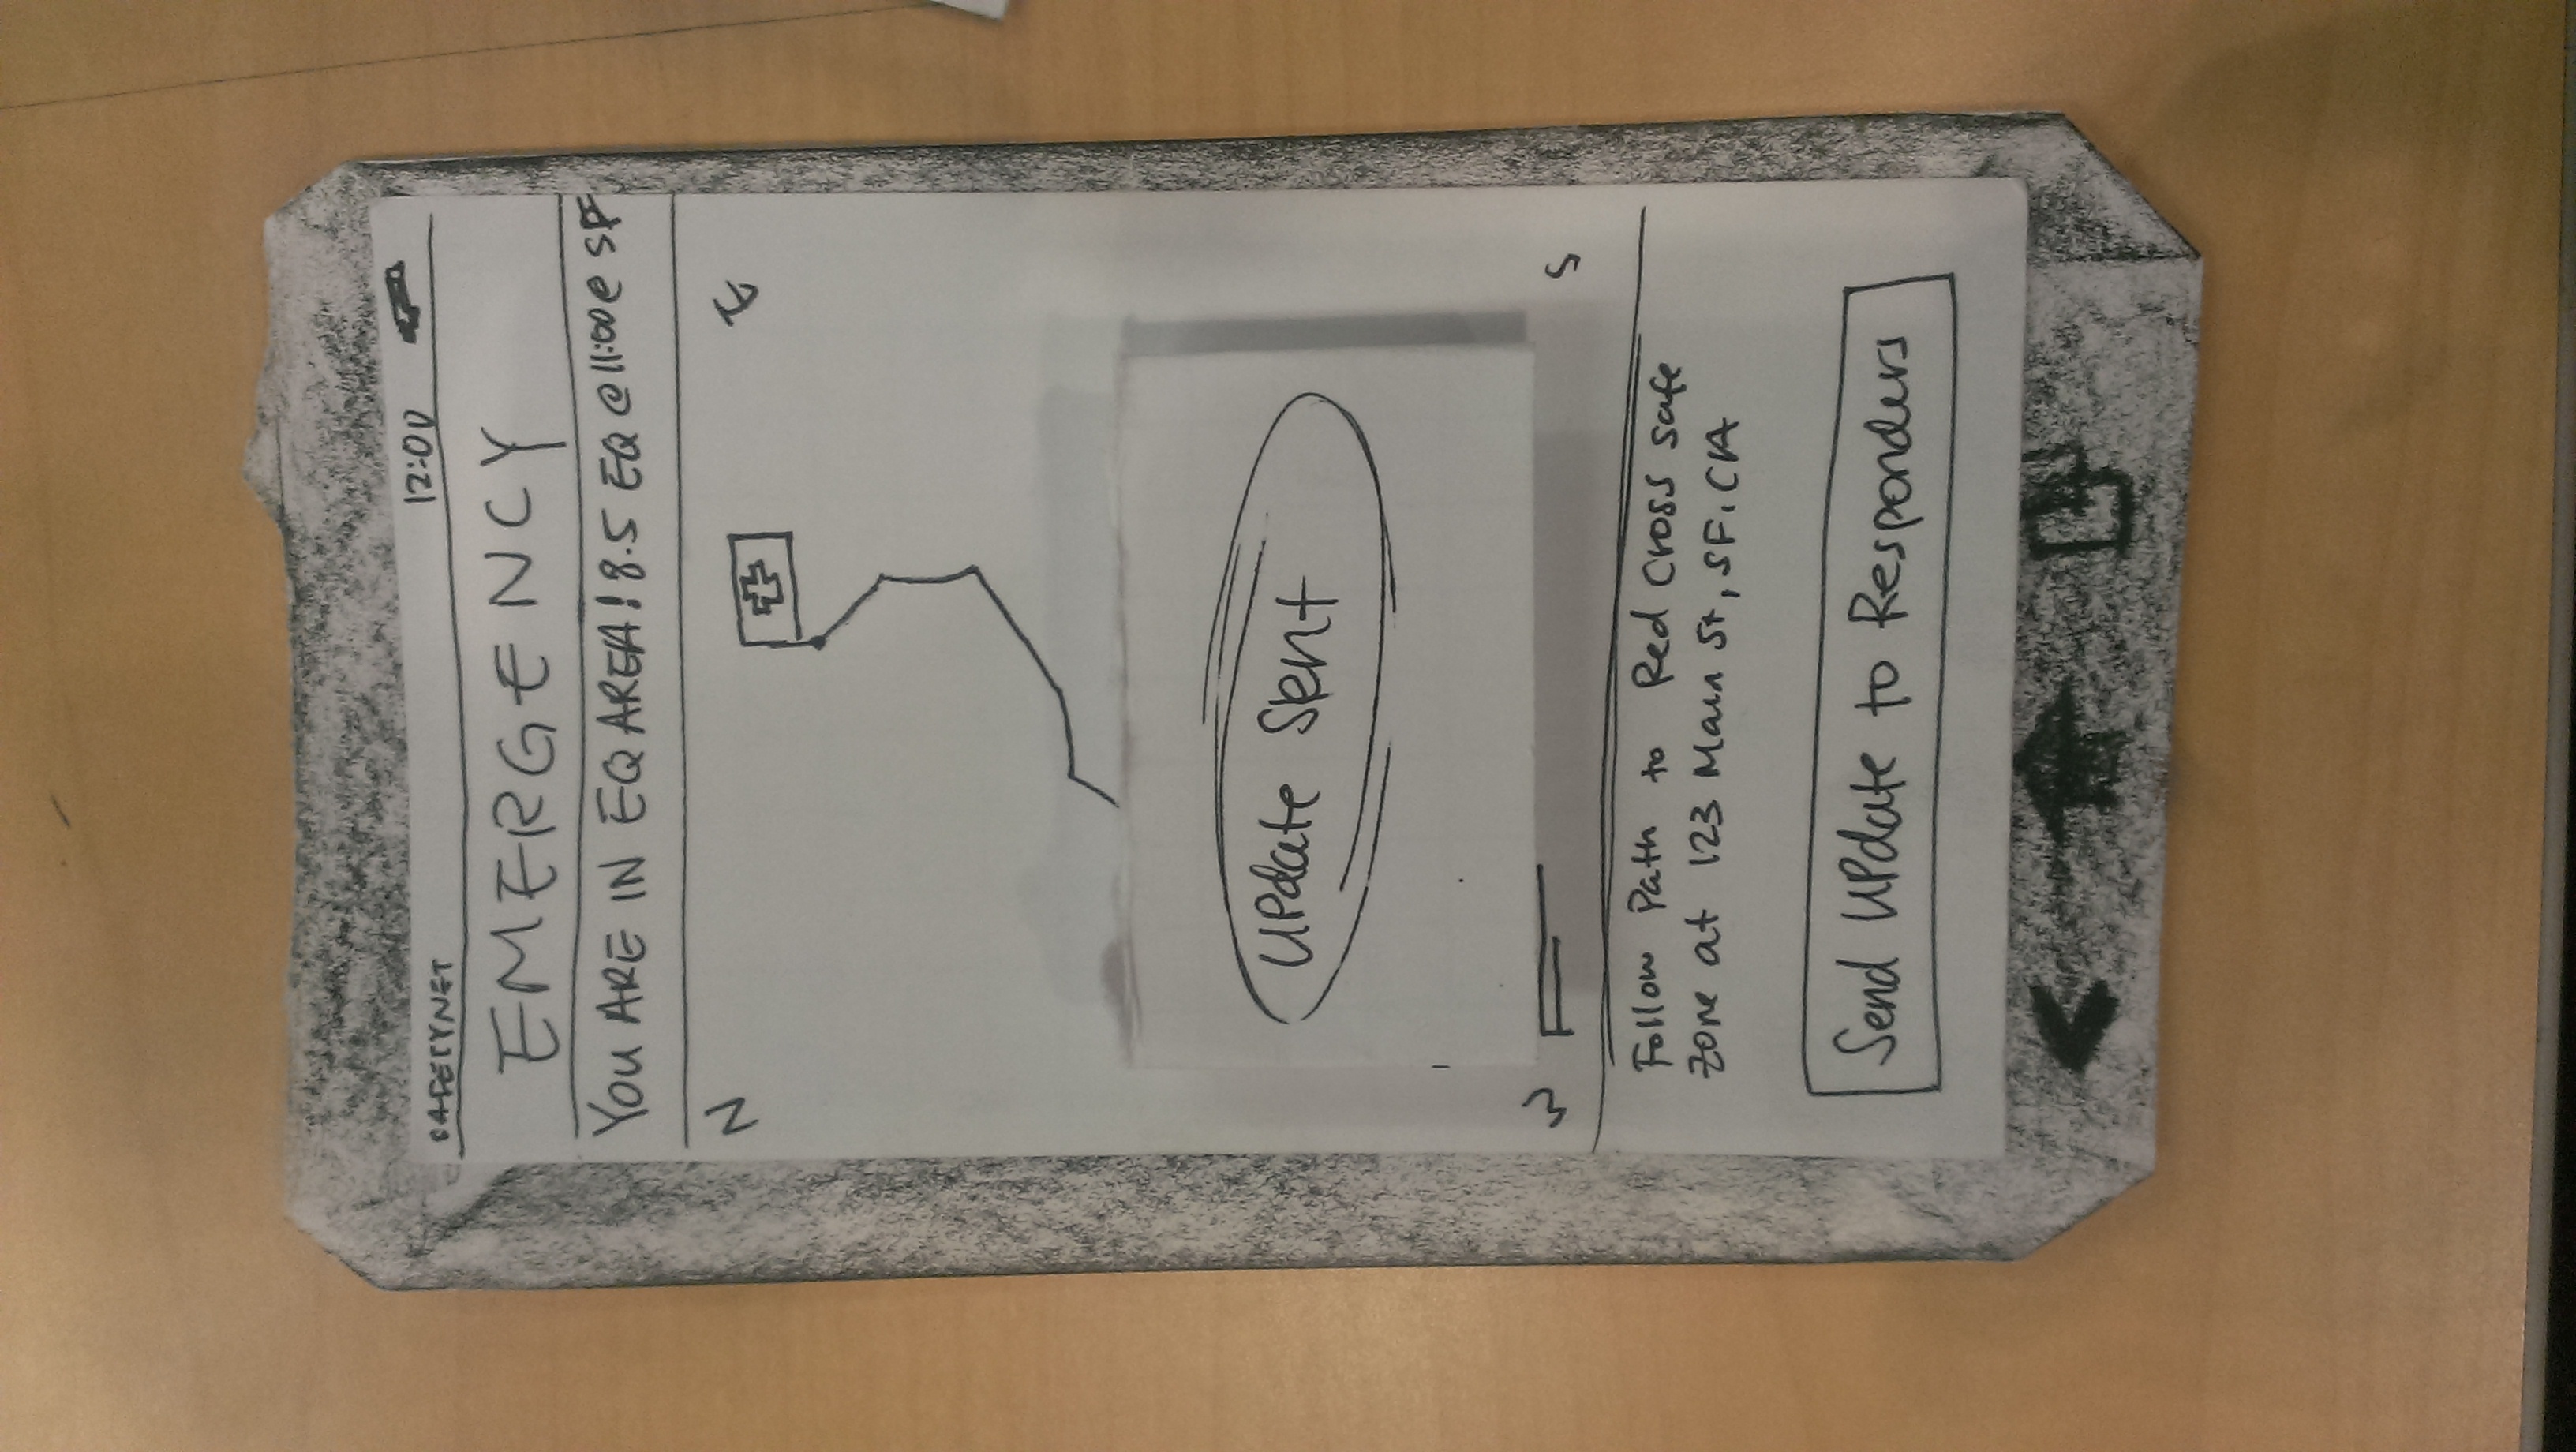 SAFETYNET 12:00
EMERGENCY
YOU ARE IN EQ AREA! 8.5 EQ @ 11:00 @ SF
N E
Update Sent
W S
Follow Path to Red Cross safe
zone at 123 Main St, SF, CA
Send Update to Responders